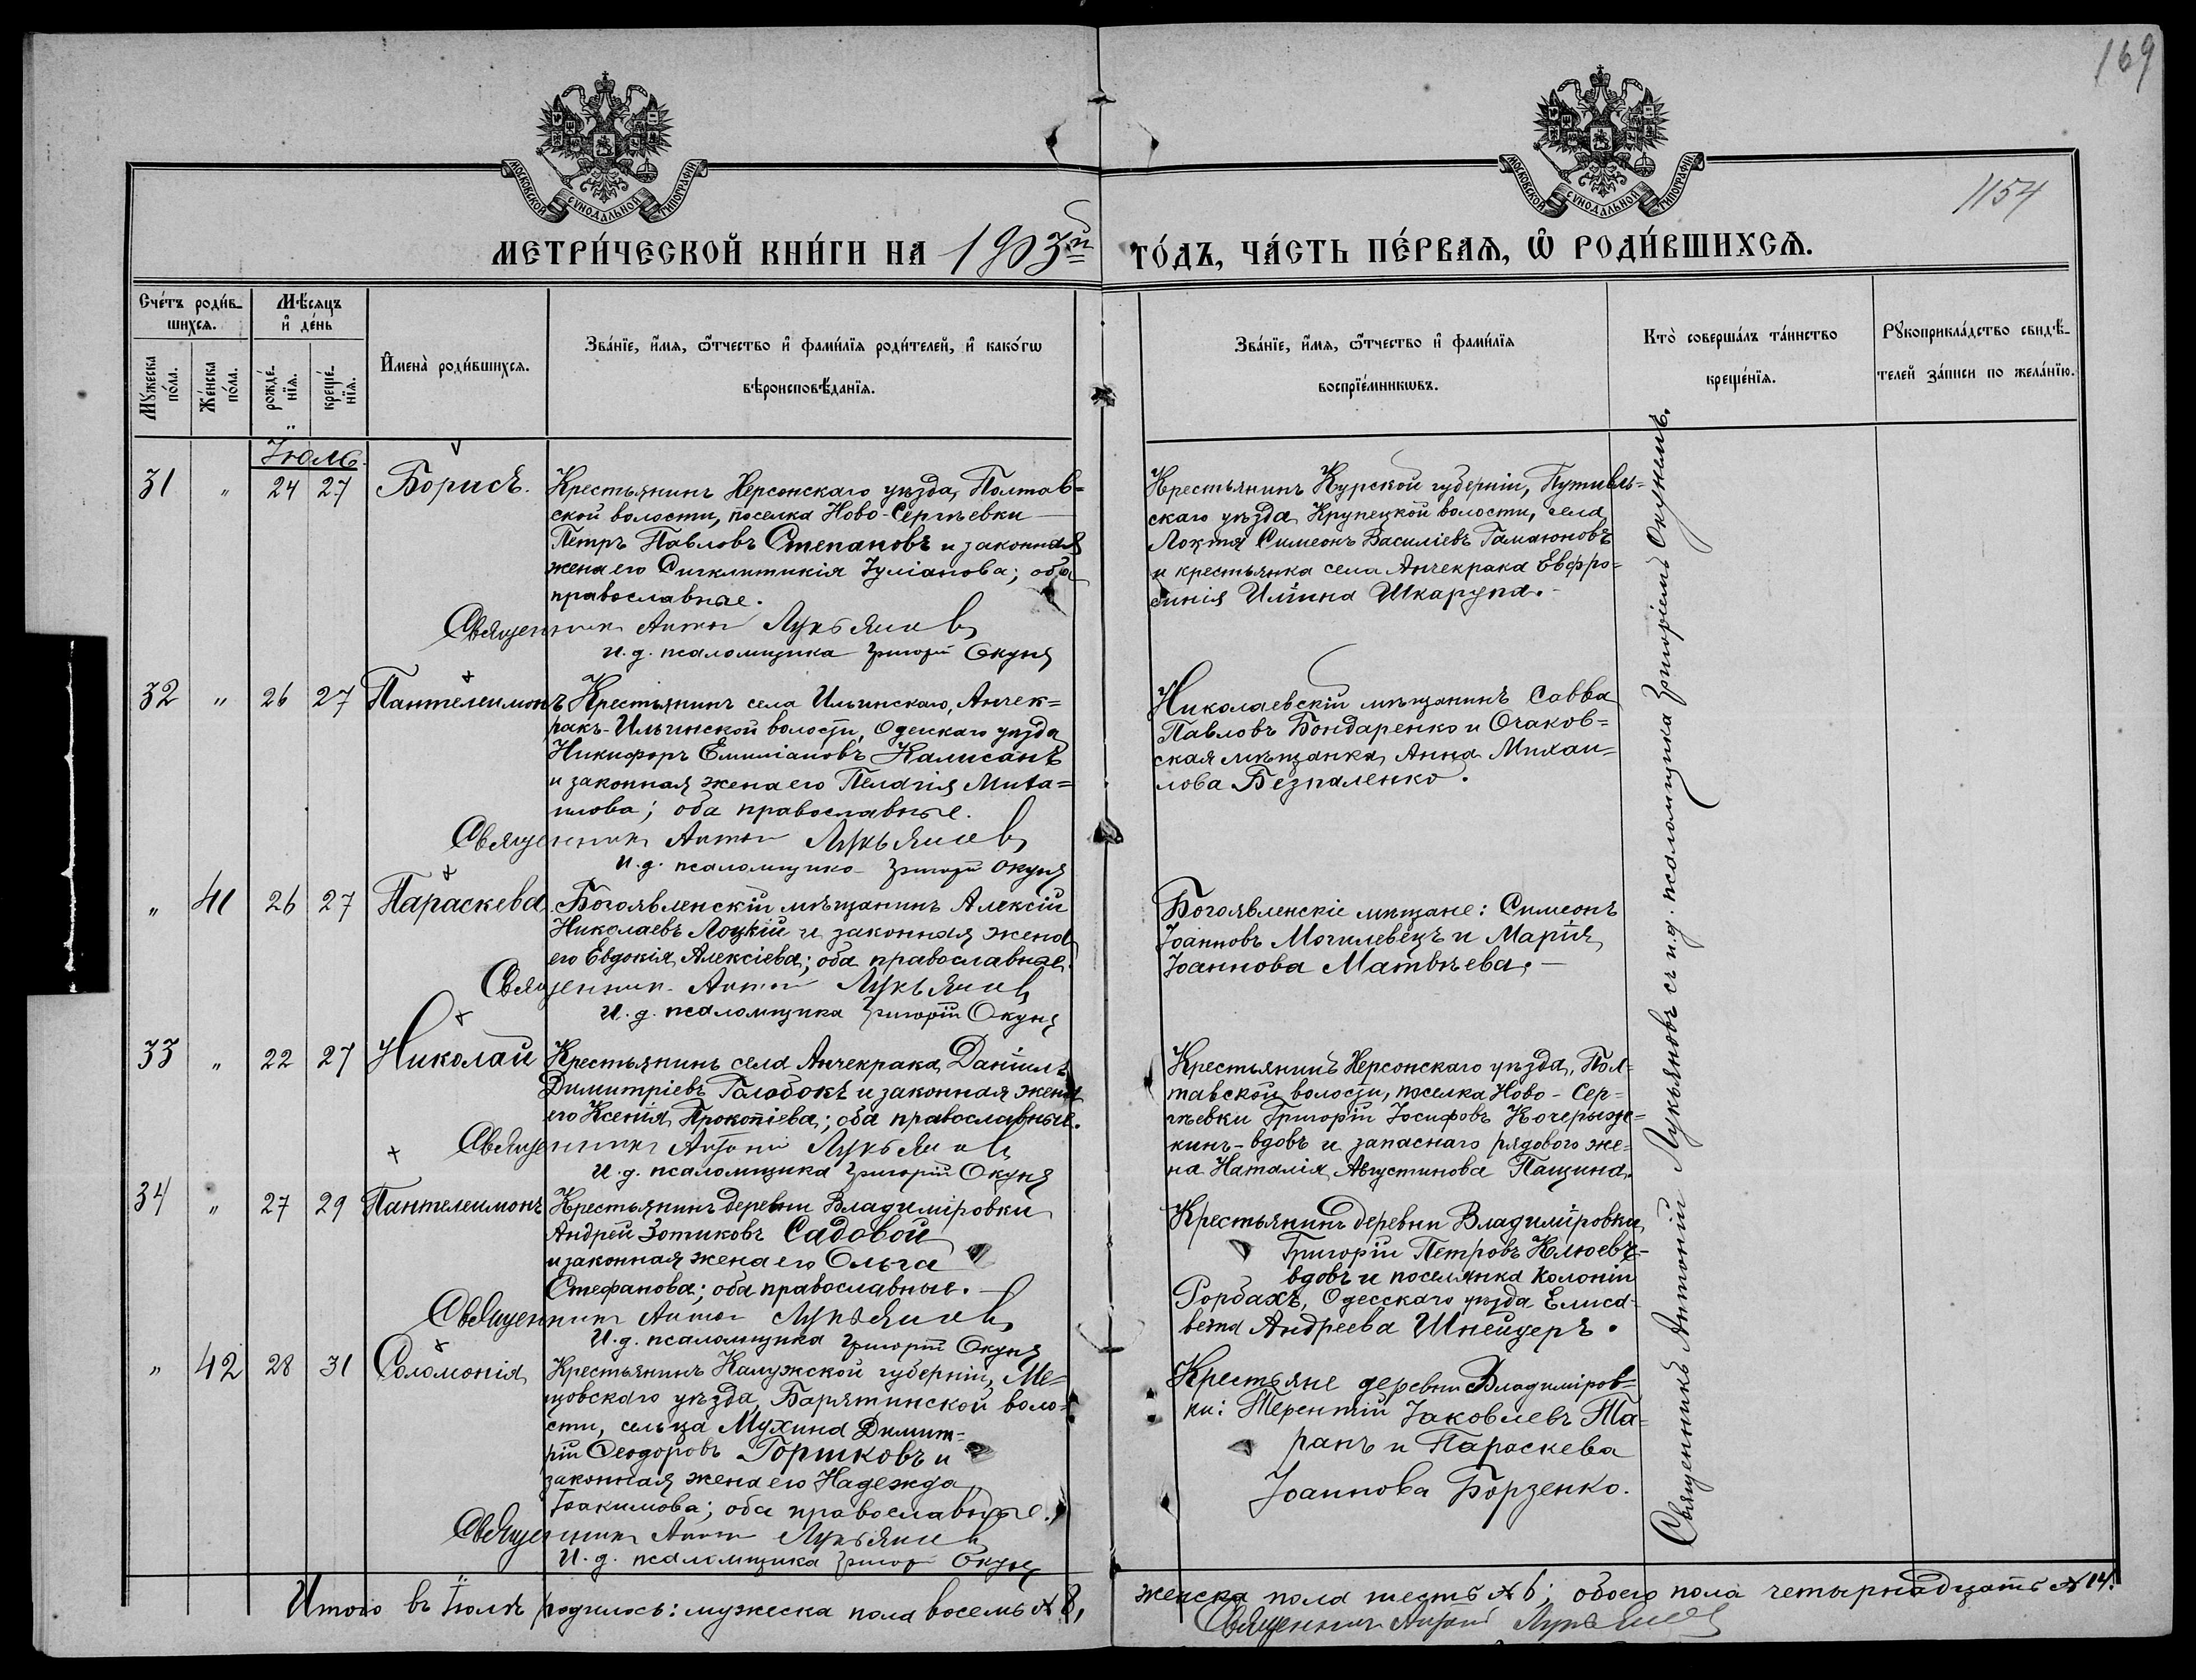 169
1154
МОСКОВСКОЙ СѴНОДАЛЬНОЙ ТИПОГРАФІИ
МОСКОВСКОЙ СѴНОДАЛЬНОЙ ТИПОГРАФІИ
МЕТРИ́ЧЕСКОЙ КНИ́ГИ НА 1903й ГО́ДЪ, ЧА́СТЬ ПЕ́РВАѦ, Ѡ РОДИ́ВШИХСѦ.
Сче́тъ роди́в-
шихсѧ.
Мꙋ́жеска по́ла.
Же́нска по́ла.
Мѣ́сѧцъ и де́нь
рожде́-нїѧ.
креще́-нїѧ.
Имена̀ роди́вшихсѧ.
Зва́нїе, и́мѧ, ѻ́тчество и фами́лїѧ роди́телей, и како́гѡ
вѣроисповѣ́данїѧ.
Зва́нїе, и́мѧ, ѻ́тчество и фами́лїѧ
воспрїе́мникѡвъ.
Кто̀ соверша́лъ та́инство
креще́нїѧ.
Рꙋкоприкла́дство свидѣ́-
телей за́писи по жела́нїю.
Іюль.
31 " 24 27 Борисъ.
Крестьянинъ Херсонскаго уѣзда, Полтав-
ской волости, поселка Ново-Сергѣевки
Петръ Павловъ Степановъ и законная
жена его Сигклитикія Іуліанова; оба
православные.
Священникъ Антоній Лукьяновъ
И. д. псаломщика Григорій Окунь
Крестьянинъ Курской губерніи, Путивль-
скаго уѣзда, Крупецкой волости, села
Локтя Симеонъ Василіевъ Гамаюновъ
и крестьянка села Анчекрака Евфро-
синія Иліина Шкарупа.
32 " 26 27 Пантелеимонъ
Крестьянинъ села Ильинскаго, Анчек-
ракъ-Ильинской волости, Одесскаго уѣзда
Никифоръ Емиліановъ Калисанъ
и законная жена его Пелагія Миха-
илова; оба православные.
Священникъ Антоній Лукьяновъ
И. д. псаломщика Григорій Окунь
Николаевскій мѣщанинъ Савва
Павловъ Бондаренко и Очаков-
ская мѣщанка Анна Михаи-
лова Безпаленко.
" 41 26 27 Параскева
Богоявленскій мѣщанинъ Алексій
Николаевъ Лоцкій и законная жена
его Евдокія Алексіева; оба православные.
Священникъ Антоній Лукьяновъ
И. д. псаломщика Григорій Окунь
Богоявленскіе мѣщане: Симеонъ
Іоанновъ Могилевецъ и Марія
Іоаннова Матвѣева.
33 " 22 27 Николай
Крестьянинъ села Анчекрака Даніилъ
Димитріевъ Голобокъ и законная жена
его Ксенія Прокопіева; оба православные.
Священникъ Антоній Лукьяновъ
И. д. псаломщика Григорій Окунь
Крестьянинъ Херсонскаго уѣзда, Пол-
тавской волости, поселка Ново-Сер-
гѣевки Григорій Іосифовъ Кочерыж-
кинъ-вдовъ и запаснаго рядового же-
на Наталія Августинова Пащина.
34 " 27 29 Пантелеимонъ
Крестьянинъ деревни Владиміровки
Андрей Зотиковъ Садовой
и законная жена его Ольга
Стефанова; оба православные.
Священникъ Антоній Лукьяновъ
И. д. псаломщика Григорій Окунь
Крестьянинъ деревни Владиміровки
Григорій Петровъ Клюевъ-
вдовъ и поселянка колоніи
Рорбахъ, Одесскаго уѣзда Елиса-
вета Андреева Шнейдеръ.
" 42 28 31 Соломонія
Крестьянинъ Калужской губерніи, Ме-
щовскаго уѣзда, Барятинской воло-
сти, сельца Мухина Димит-
рій Ѳеодоровъ Горшковъ и
законная жена его Надежда
Іоакимова; оба православные.
Священникъ Антоній Лукьяновъ
И. д. псаломщика Григорій Окунь
Крестьяне деревни Владиміров-
ки: Терентій Іаковлевъ Та-
ранъ и Параскева
Іоаннова Борзенко.
Священникъ Антоній Лукьяновъ съ и.д. псаломщика Григоріемъ Окунемъ.
Итого въ Іюлѣ родилось: мужеска пола восемь № 8, женска пола шесть № 6; обоего пола четырнадцать № 14.
Священникъ Антоній Лукьяновъ